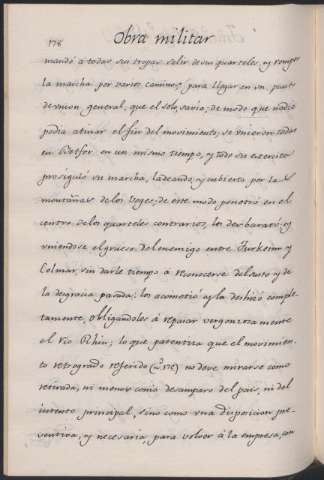 178
Obra militar
mandó a todas sus tropas salir de sus quarteles, y romper
la marcha por varios caminos, para llegar en un punto
de union general, que el solo savia; de modo que nadie
podia atinar el fin del movimiento; se unieron todas
en Betfor en un mismo tiempo, y todo su exercito
prosiguió su marcha, ladeando, y cubierta por las
montañas de los Voges; de este modo penetró en el
centro de los quarteles contrarios, los desbarató; y
uniendose el grueso del enemigo entre Turkeim y
Colmar, sin darle tiempo á reconocerse del susto y de
la desgracia pasada; los acometió, y la deshizo comple-
tamente, obligandoles á repasar vergonzosamente
el rio Rhin; lo que patentiza que el movimien-
to retrogrado referido (nº 172) no deve mirarse como
retirada, ni menor como desamparo del pais, ni del
intento principal, sino como una disposicion pre-
ventiva; y necesaria, para volver á la empresa, con